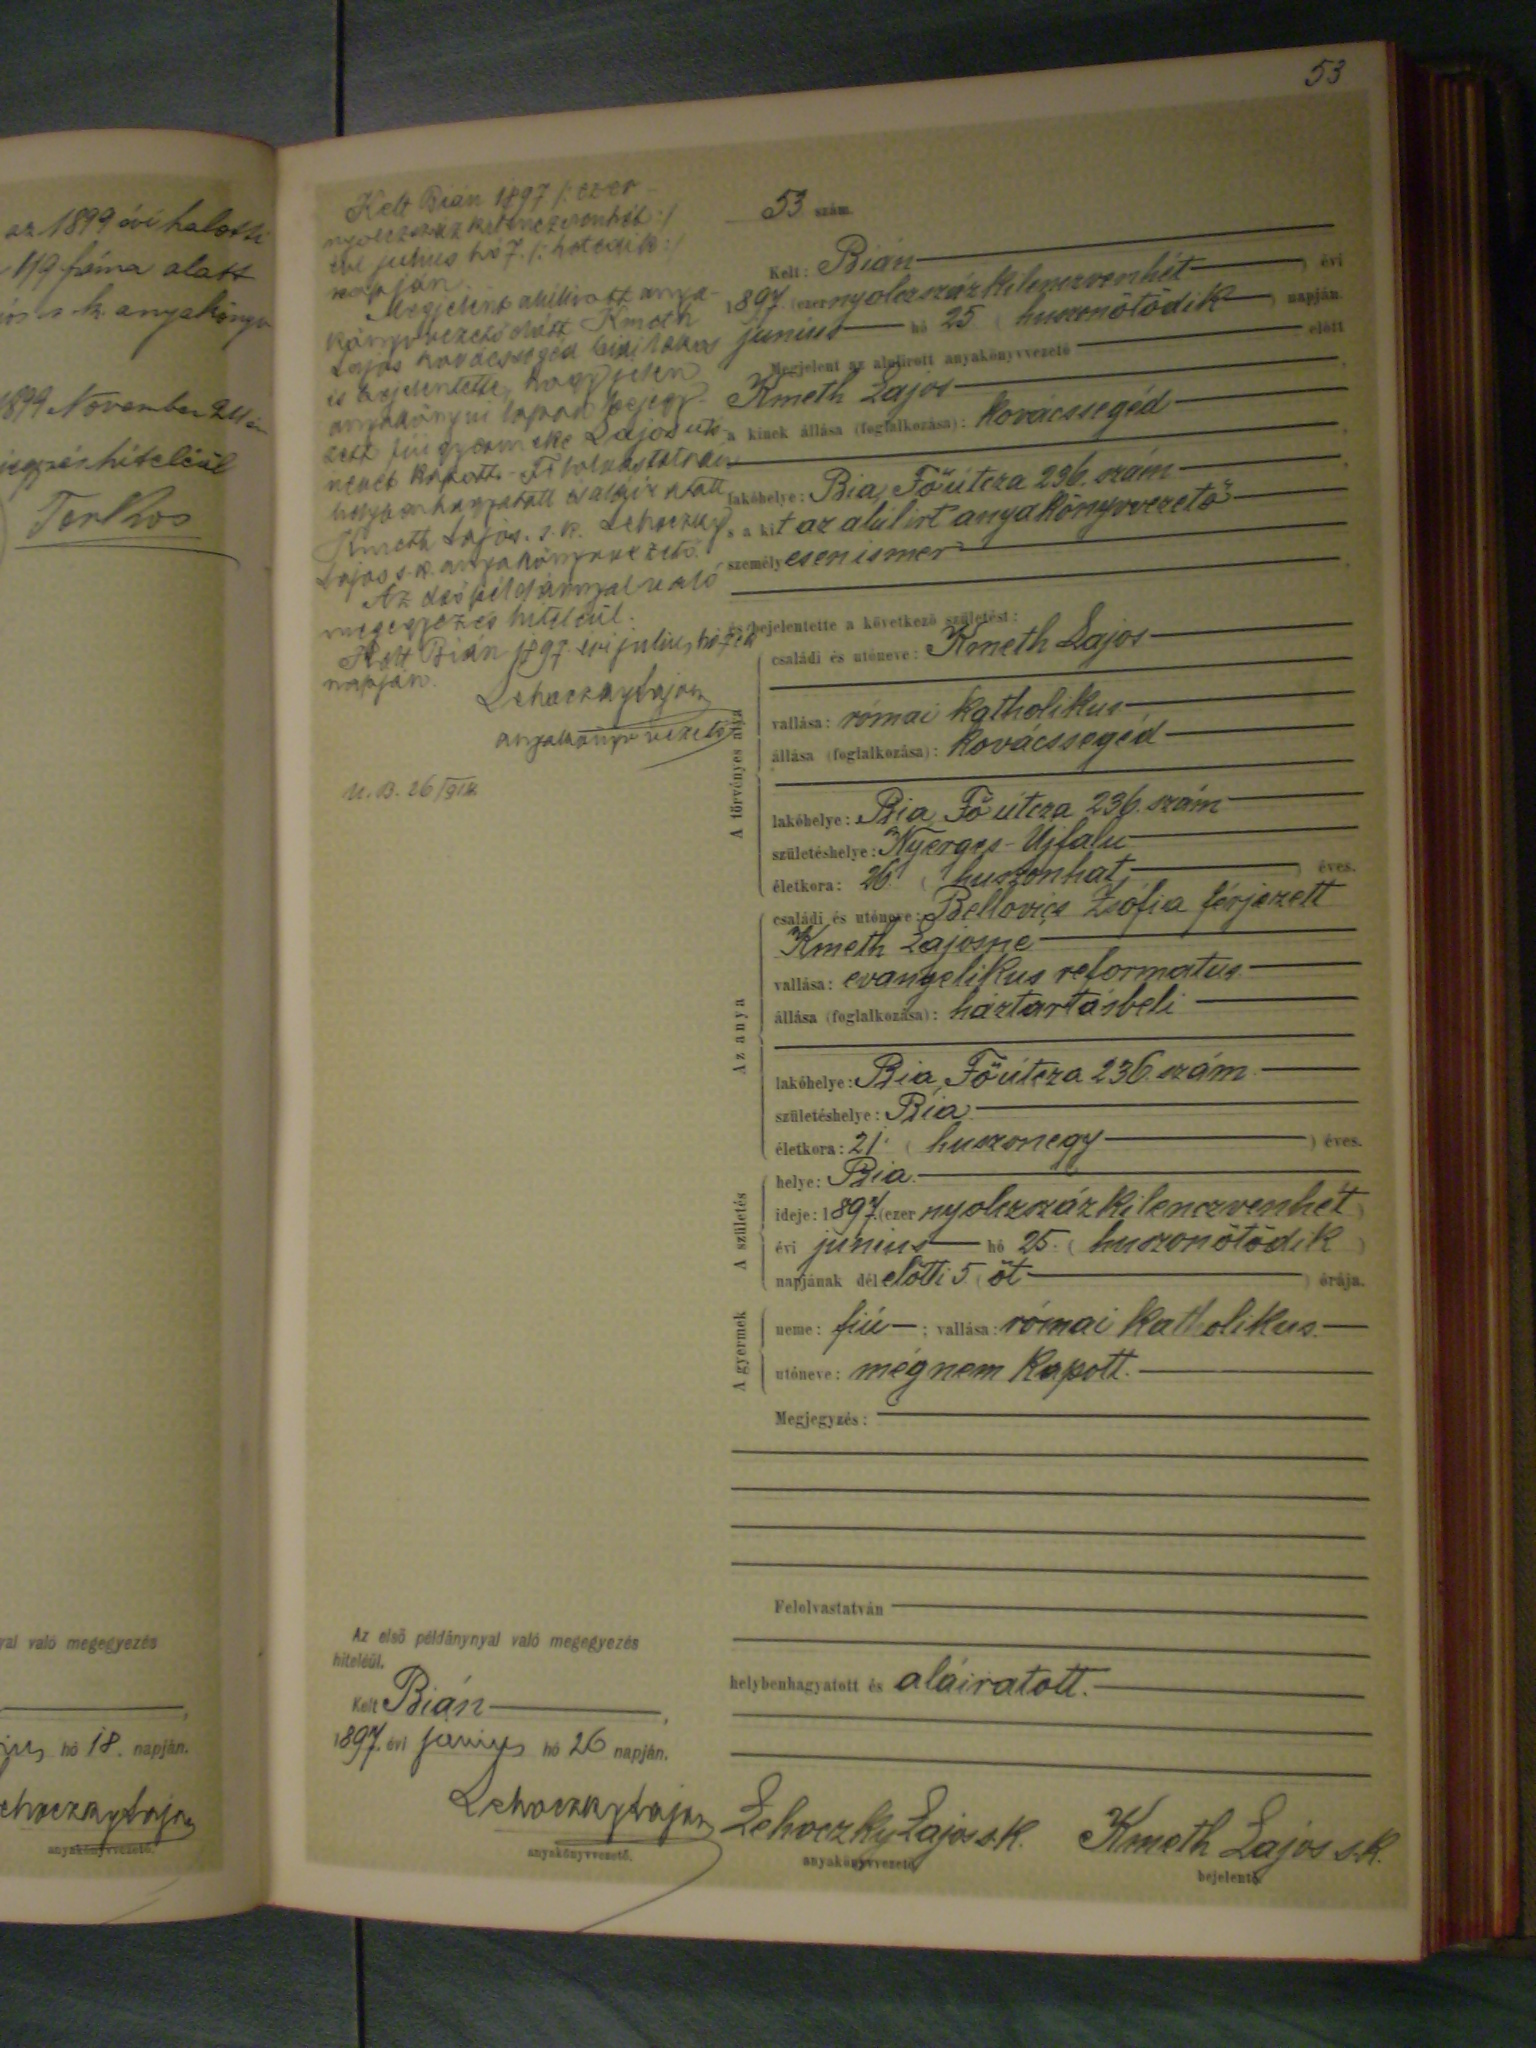 az 1899 évi halotti
119 száma alatt
s. k. anyakönyv
1899 November 24 én
hiteléül
val való megegyezés
hó 18. napján.
Lehoczky Lajos
anyakönyvvezető.
53
Kelt Bián 1897 /: ezer
nyolczszázkilenczvenhét :/
évi julius hó 7. /: hetedik :/
napján.
Megjelent alulirott anya-
könyvvezető előtt Kmeth
Lajos kovácssegéd biai lakos
és bejelentette, hogy jelen
anyakönyvi lapon bejegy-
zett fiu gyermeke Lajos utó
nevet kapott. - Felolvastatván
helybenhagyatott és aláíratott
Kmeth Lajos s. k. Lehoczky
Lajos s. k. anyakönyvvezető.
Az első példánnyal való
megegyezés hiteléül.
Kelt Bián 1897. évi julius hó 7 én
napján.
Lehoczky Lajos
anyakönyvvezető
53 szám.
Kelt: Bián
1897. (ezer nyolczszázkilenczvenhét) évi
junius hó 25 (huszonötödik) napján.
Megjelent az alulirott anyakönyvvezető előtt
Kmeth Lajos
a kinek állása (foglalkozása): kovácssegéd
lakóhelye: Bia, Főútcza 236. szám
s a kit az alúlirt anyakönyvvezető
személyesen ismer
és bejelentette a következő születést:
A törvényes atya
családi és utóneve: Kmeth Lajos
vallása: római katholikus
állása (foglalkozása): kovácssegéd
lakóhelye: Bia, Főútcza 236. szám
születéshelye: Nyerges-Ujfalu
életkora: 26. (huszonhat) éves.
Az anya
családi és utóneve: Bellovics Zsófia férjezett
Kmeth Lajosné
vallása: evangelikus reformatus.
állása (foglalkozása): háztartásbeli
lakóhelye: Bia, Főútcza 236. szám
születéshelye: Bia
életkora: 21. (huszonegy) éves.
A születés
helye: Bia.
ideje: 1897. (ezer nyolczszázkilenczvenhét)
évi junius hó 25. (huszonötödik)
napjának délelőtti 5 (öt) órája.
A gyermek
neme: fiú; vallása: római katholikus.
utóneve: még nem kapott.
Megjegyzés:
Felolvastatván
helybenhagyatott és aláiratott.
Az első példánynyal való megegyezés
hiteléül.
Kelt Bián,
1897. évi junius hó 26 napján.
Lehoczky Lajos
anyakönyvvezető.
Lehoczky Lajos s.k.
anyakönyvvezető.
Kmeth Lajos s.k.
bejelentő.